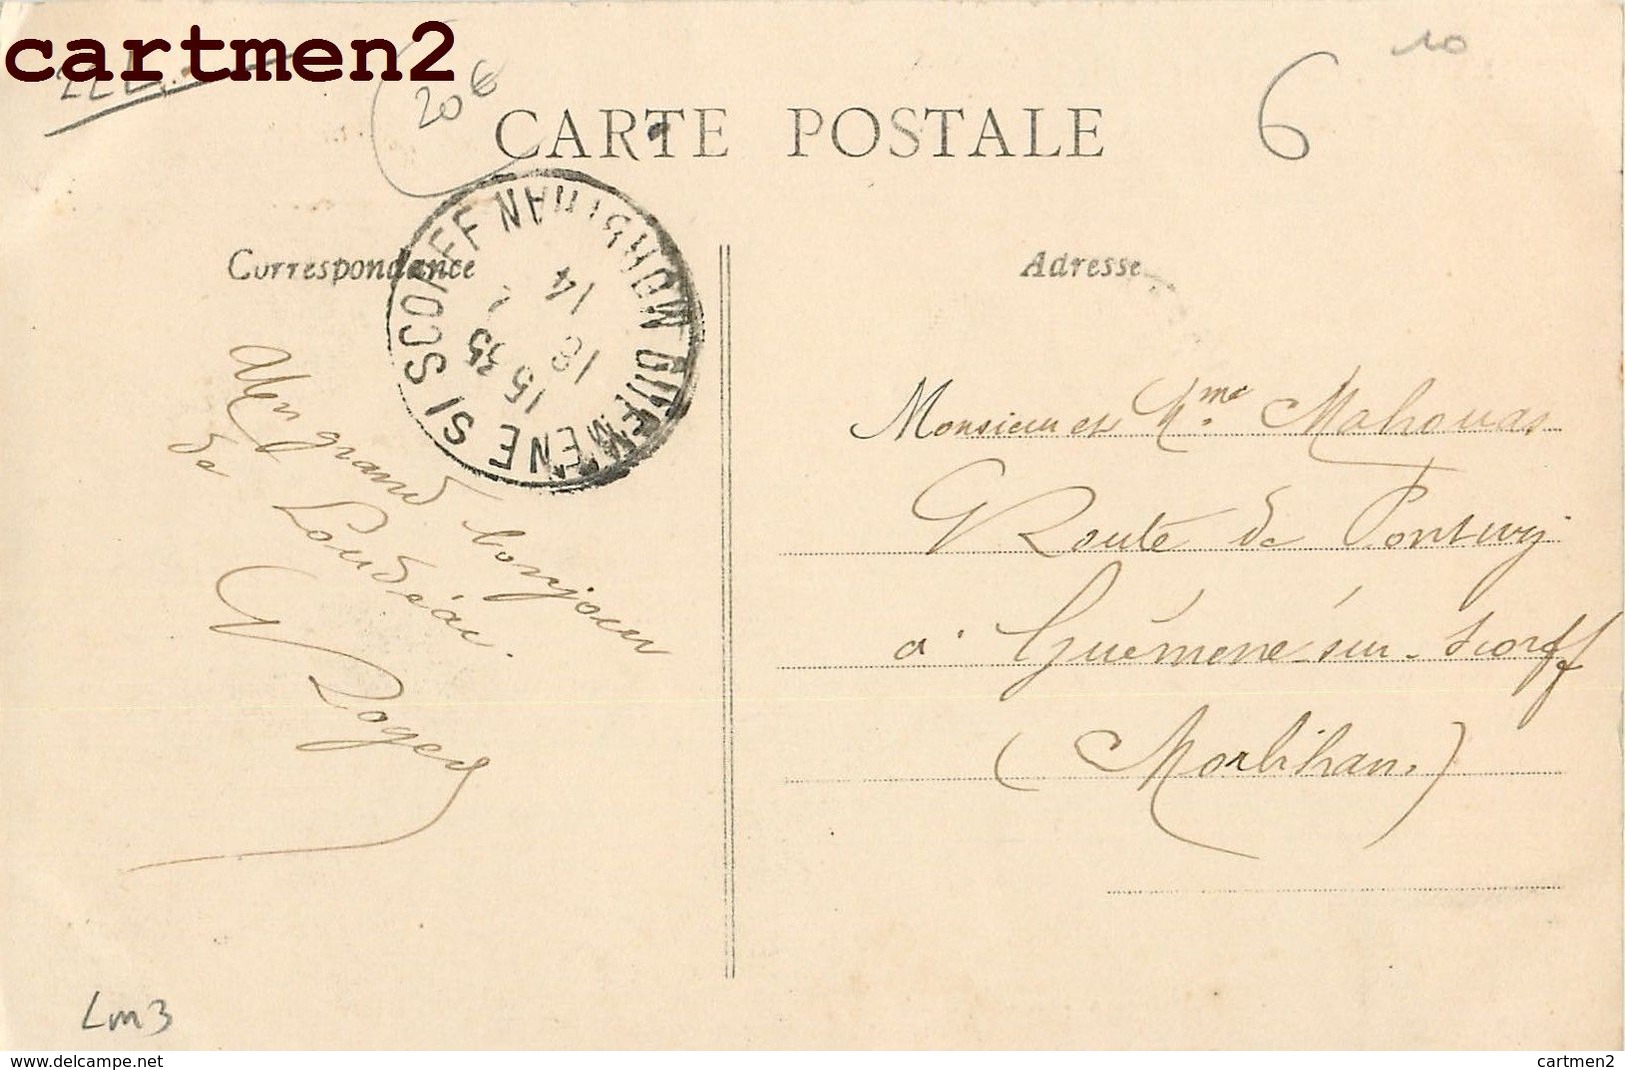 cartmen2
22L
20€
6
10
CARTE POSTALE
Correspondance
Adresse
GUEMENE SI SCORFF MORBIHAN
15 35
18
14
Un grand bonjour
de Loudéac.
Roger
Monsieur et Mme Mahouas
Route de Pontivy
a Guémené-sur-Scorff
(Morbihan.)
Lm3
delcampe.net
cartmen2